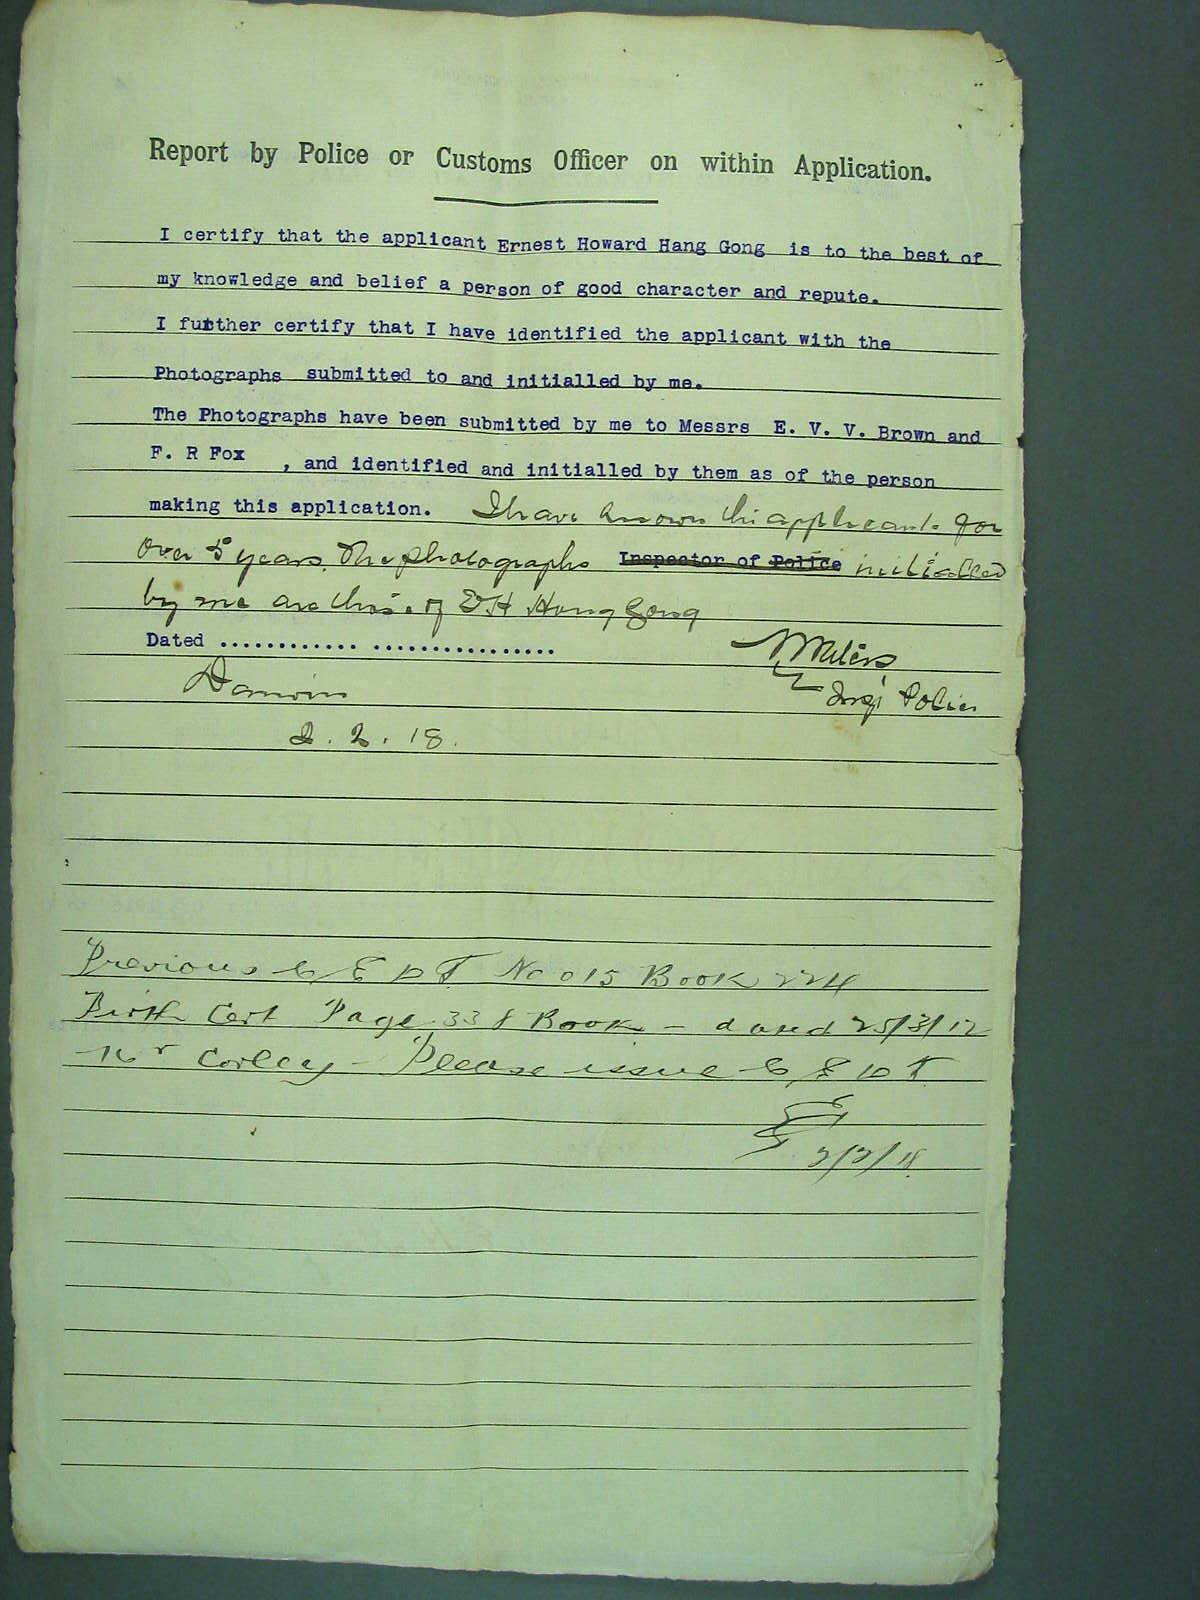 Report by Police or Customs Officer on within Application.
I certify that the applicant Ernest Howard Hang Gong is to the best of
my knowledge and belief a person of good character and repute.
I further certify that I have identified the applicant with the
Photographs submitted to and initialled by me.
The Photographs have been submitted by me to Messrs E. V. V. Brown and
F. R Fox , and identified and initialled by them as of the person
making this application. I have known this applicant for
over 5 years. The photographs Inspector of Police initialled
by me are those of E H Hang Gong
Dated ............ ................
Waters
Insp Police
Darwin
2.2.18.
Previous C E D T No 015 Book 224
Birth Cert Page 338 Book - dated 25/3/12
Mr Corley - Please issue C E D T
2/2/18